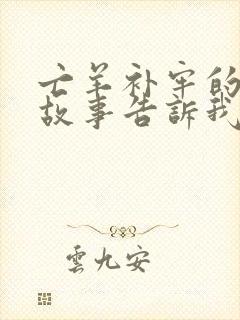 亡羊补牢的
故事告訴我
雲九安